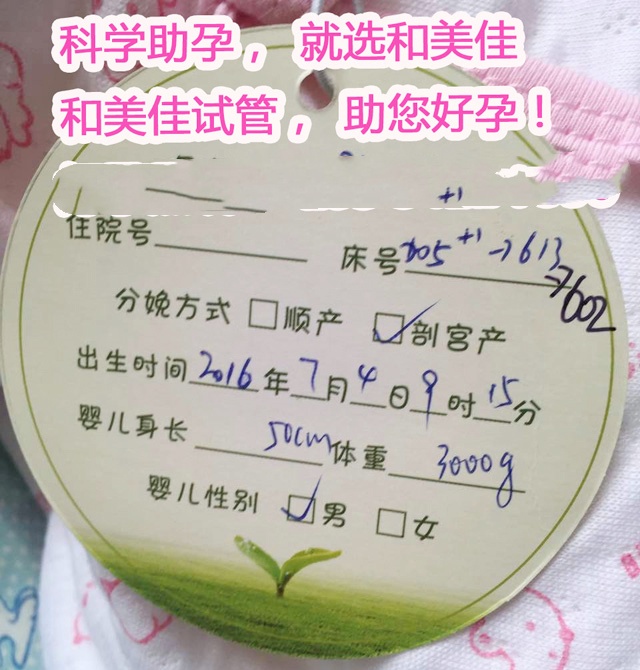 科学助孕， 就选和美佳
和美佳试管， 助您好孕！
+1
住院号 床号705+1→613
→602
分娩方式 □顺产 ☑剖宫产
出生时间2016年7月4日9时15分
婴儿身长 50cm体重 3000g
婴儿性别 ☑男 □女